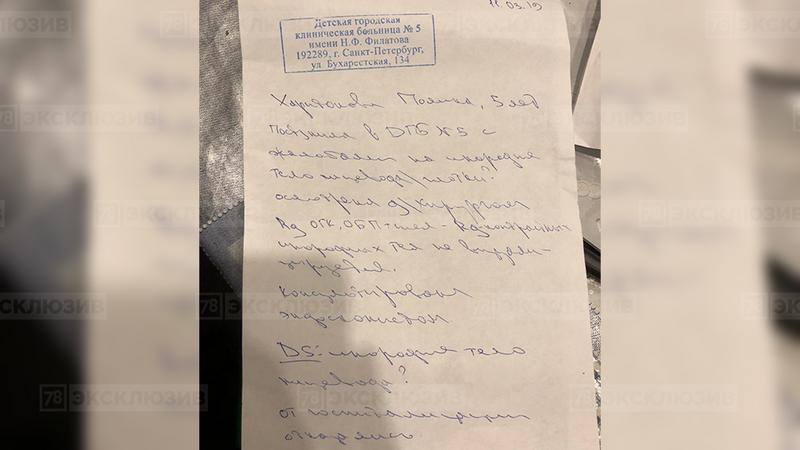 11.03.19
Детская городская
клиническая больница № 5
имени Н.Ф. Филатова
192289, г. Санкт-Петербург,
ул Бухарестская, 134
Харитонова Полина, 5 лет
Поступила в ДГБ №5 с
жалобами на инородн
тело пищевода/глотки?
осмотрена д/хирургом
Rg ОГК, ОБП + шея - Rg-контрастных
инородных тел не визуали-
зируется.
Консультирована
эндоскопистом
DS: инородн тело
пищевода?
от госпитализации
отказались
78 ЭКСКЛЮЗИВ